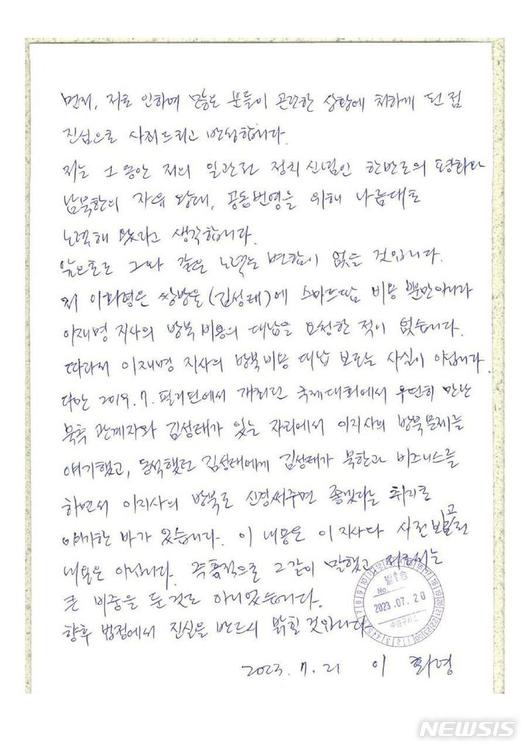 먼저, 저로 인하여 많은 분들이 곤란한 상황에 처하게 된 점
진심으로 사죄드리고 반성합니다.
저는 그동안 저의 일관된 정치신념인 한반도의 평화와
남북한의 자유 왕래, 공동번영을 위해 나름대로
노력해 왔다고 생각합니다.
앞으로도 그와 같은 노력은 변함이 없을 것입니다.
저 이화영은 쌍방울(김성태)에 스마트팜 비용 뿐만아니라
이재명 지사의 방북 비용의 대납을 요청한 적이 없습니다.
따라서 이재명 지사의 방북비용 대납 보도는 사실이 아닙니다.
다만 2019.7. 필리핀에서 개최된 국제대회에서 우연히 만난
북측 관계자와 김성태가 있는 자리에서 이지사의 방북문제를
얘기했고, 동석했던 김성태에게 김성태가 북한과 비즈니스를
하면서 이지사의 방북도 신경써주면 좋겠다는 취지로
얘기한 바가 있습니다. 이 내용은 이 지사와 사전 보고된
내용은 아닙니다. 즉흥적으로 그같이 말했고 저로서는
큰 비중을 둔 것도 아니었습니다.
향후 법정에서 진실을 반드시 밝힐 것입니다.
2023. 7. 21 이 화영
발송
No.
2023.07.20
NEWSIS